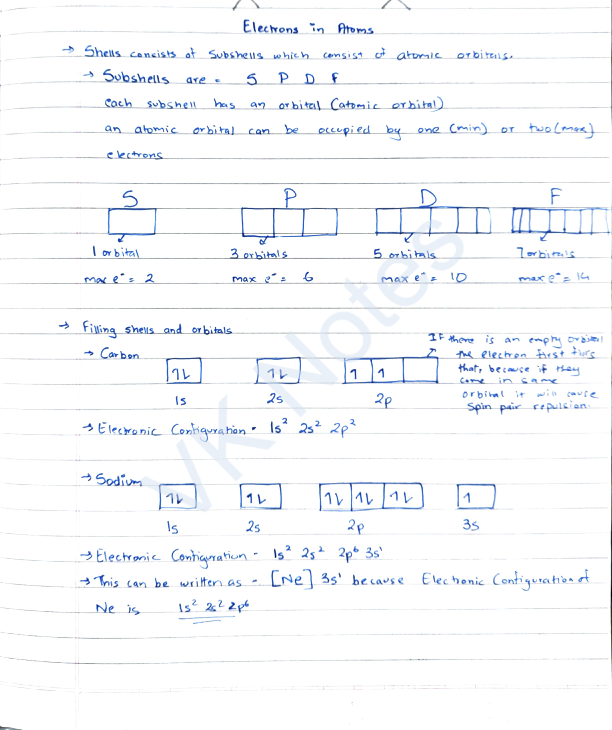 Electrons in Atoms
→ Shells consists of subshells which consist of atomic orbitals.
→ Subshells are = S P D F
each subshell has an orbital (atomic orbital)
an atomic orbital can be occupied by one (min) or two (max)
electrons
S P D F
1 orbital 3 orbitals 5 orbitals 7 orbitals
max e⁻ = 2 max e⁻ = 6 max e⁻ = 10 max e⁻ = 14
→ Filling shells and orbitals
→ Carbon
If there is an empty orbital
the electron first fills
that, because if they
come in same
orbital it will cause
spin pair repulsion.
1↿⇂ 1↿⇂ 1 1
1s 2s 2p
→ Electronic Configuration - 1s² 2s² 2p²
→ Sodium
1⇂ 1⇂ 1⇂ 1⇂ 1⇂ 1
1s 2s 2p 3s
→ Electronic Configuration - 1s² 2s² 2p⁶ 3s¹
→ This can be written as - [Ne] 3s¹ because Electronic Configuration of
Ne is 1s² 2s² 2p⁶
VK Notes